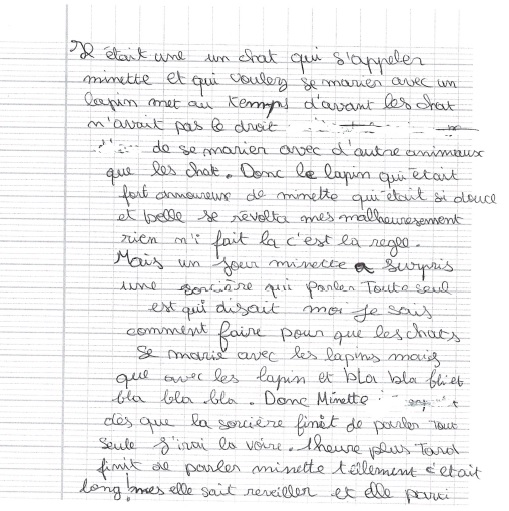 Il était une un chat qui s'appeler
minette et qui voulez se marier avec un
lapin met au temps d'avant les chat
n'avait pas le droit
de se marier avec d'autre animaux
que les chat. Donc le lapin qui était
fort amoureux de minette qui était si douce
et belle se révolta mes malheuresement
rien n'i fait la c'est la regle.
Mais un jour minette a surpris
une sorcière qui parler Toute seul
est qui disait moi je sais
comment faire pour que les chats
se marie avec les lapins mais
que avec les lapin et bla bla bli et
bla bla bla. Donc Minette
dès que la sorcière finêt de parler tout
seule j'irai la voire. 1 heure plus Tard
finit de parler minette tèllement c'etait
long! mes elle sait reveiller et elle parti